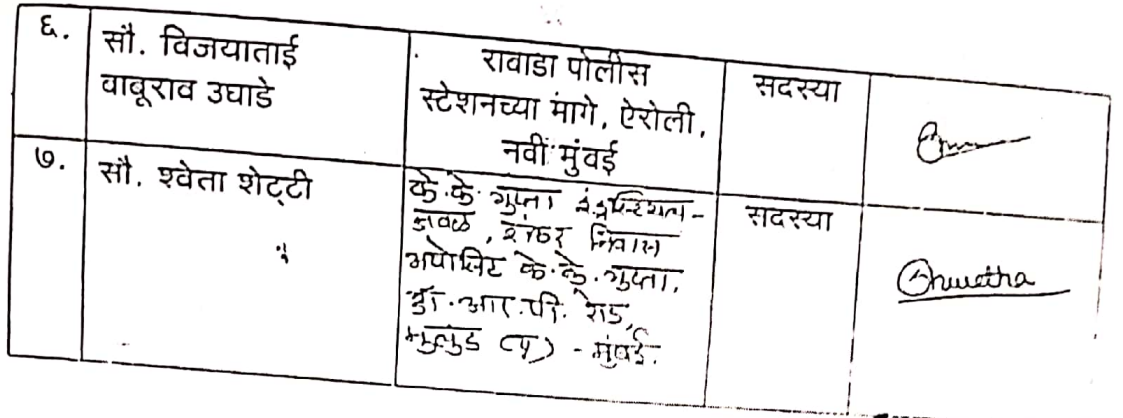 ६.
सौ. विजयाताई
वाबूराव उघाडे
रावाडा पोलीस
स्टेशनच्या मागे, ऐरोली,
नवी मुंबई
सदस्या
७.
सौ. श्वेता शेट्टी
के.के. गुप्ता इंडस्ट्रियल-
जवळ, शंकर निवास
अपोझिट के.के. गुप्ता,
डॉ. आर.पी. रोड,
मुलुंड (प) - मुंबई.
सदस्या
Shwetha